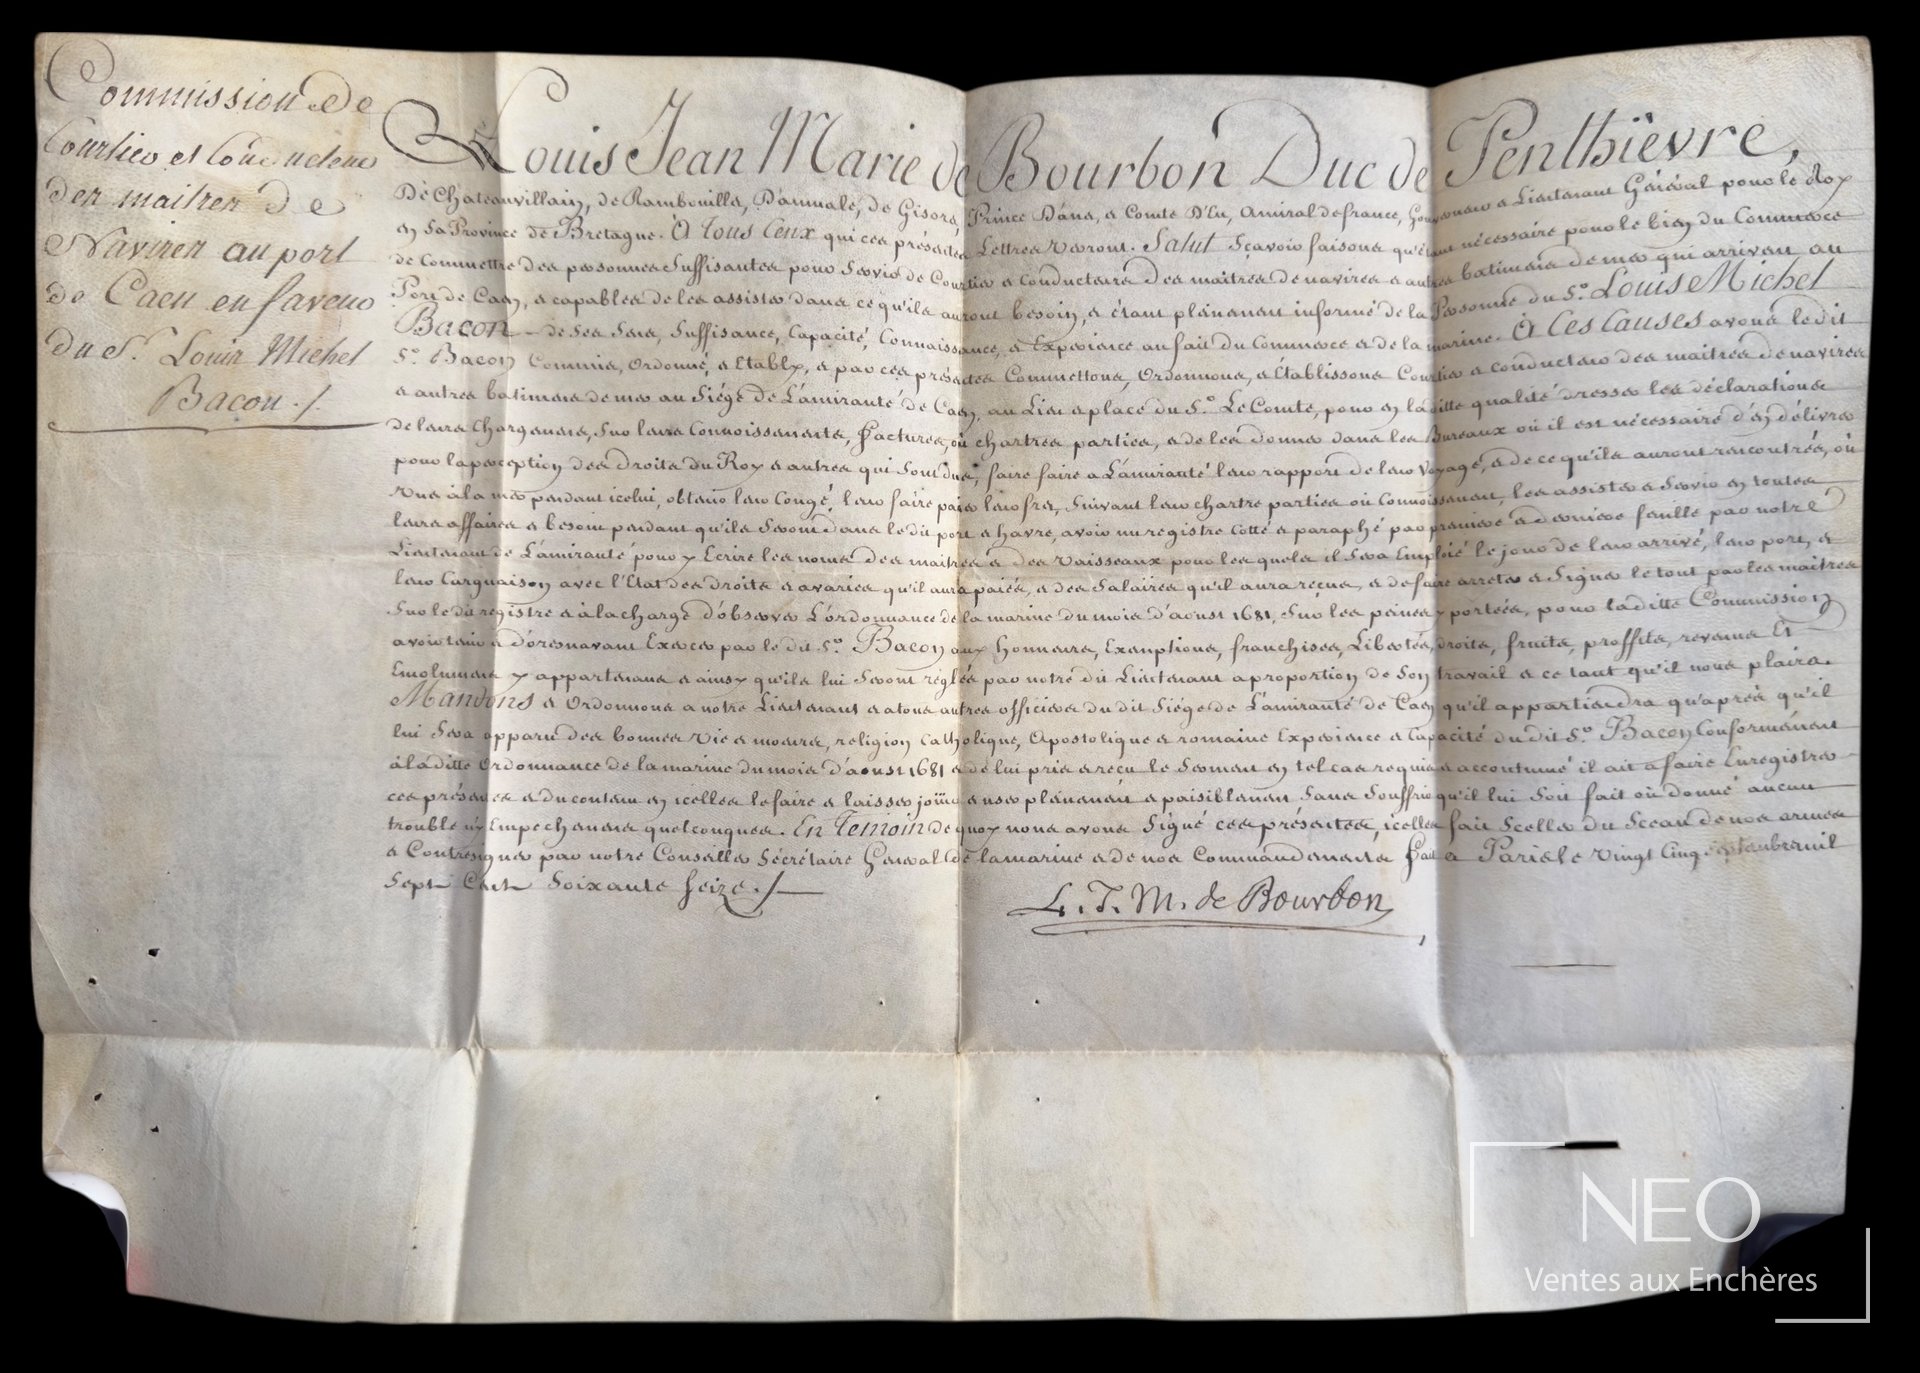 Commission de
Courtier et Conducteur
des maitres de
Navires au port
de Caen en faveur
du Sr. Louis Michel
Bacon ./.
Louis Jean Marie de Bourbon Duc de Penthièvre,
De Chateauvillain, de Rambouillet, D'aumale, de Gisors, Prince D'anet, et Comte D'Eu, Amiral de france, Gouverneur et Lieutenant Général pour le Roy
en Sa Province de Bretagne. A Tous Ceux qui ces présentes Lettres verront. Salut Sçavoir faisons qu'étant nécessaire pour le bien du Commerce
de Commettre des personnes Suffisantes pour Servir de Courtier et Conducteurs des maitres de navires et autres batimens de mer qui arrivent au
Port de Caen, et capables de les assister dans ce qu'ils auront besoin, et étant plenement informé de la Personne du Sr. Louis Michel
Bacon de Ses Sens, Suffisance, Capacité, Connaissance, et Experience au fait du Commerce et de la marine. A Ces Causes avons le dit
Sr. Bacon Commis, Ordonné, et Etably, et par ces présentes Commettons, Ordonnons, et Etablissons Courtier et conducteur des maitres de navires
et autres batimens de mer au Siége de L'amirauté de Caen, au Lieu et place du Sr. Le Comte, pour en la ditte qualité dresser les déclarations
de leurs Chargemens, Sur leurs Connoissements, factures, où chartres parties, et de les donner dans les Bureaux où il est nécessaire d'en délivrer
pour la perception des droits du Roy et autres qui Sont dus, faire faire a L'amirauté leur rapport de leur voyage, et de ce qu'ils auront rencontrés, où
vus à la mer pendant icelui, obtenir leur Congé, leur faire paier leur fret, Suivant leur chartre parties où Connoissement, les assister et Servir en toutes
leurs affaires et besoin pendant qu'ils Seront dans le dit port et havre, avoir un registre Cotté et paraphé par premiere et derniere feuille par notre
Lieutenant de L'amirauté pour y Ecrire les noms des maitres et des vaisseaux pour les quels il Sera Emploié le jour de leur arrivé, leur port, et
leur Carguaison avec l'Etat des droits et avaries qu'il aura paiés, et des Salaires qu'il aura reçus, et de faire arreter et Signer le tout par les maitres
Sur le dit registre et à la charge d'observer L'ordonnance de la marine du mois d'aoust 1681, Sur les peines y portées, pour la ditte Commission
avoir tenir et d'oresnavant Exercer par le dit Sr. Bacon aux honneurs, Exemptions, franchises, Libertés, droits, fruits, proffits, revenus Et
Emolumens y appartenans et ainsy qu'ils lui Seront réglés par notre dit Lieutenant a proportion de Son travail et ce tant qu'il nous plaira.
Mandons et Ordonnons a notre Lieutenant et a tous autres officiers du dit Siége de L'amirauté de Caen qu'il appartiendra qu'après qu'il
lui Sera apparu des bonnes vie et moeurs, religion Catholique, Apostolique et romaine Experience et Capacité du dit Sr. Bacon Conformément
à la ditte Ordonnance de la marine du mois d'aoust 1681 et de lui pris et reçu le Serment en tel cas requis et accoutumé il ait a faire Enregistrer
ces présentes et du contenu en icelles le faire et laisser joüir et user plenement et paisiblement Sans Souffrir qu'il lui Soit fait où donné aucun
trouble ny Empechemens quelconques. En Temoin de quoy nous avons Signé ces présentes, icelles fait Sceller du Sceau de nos armes
et Contresigner par notre Conseiller Sécrétaire Général de la marine et de nos Commandements fait a Paris le vingt Cinq Septembre mil
Sept Cent Soixante Seize ./.
L. J. M. de Bourbon
NEO
Ventes aux Enchères